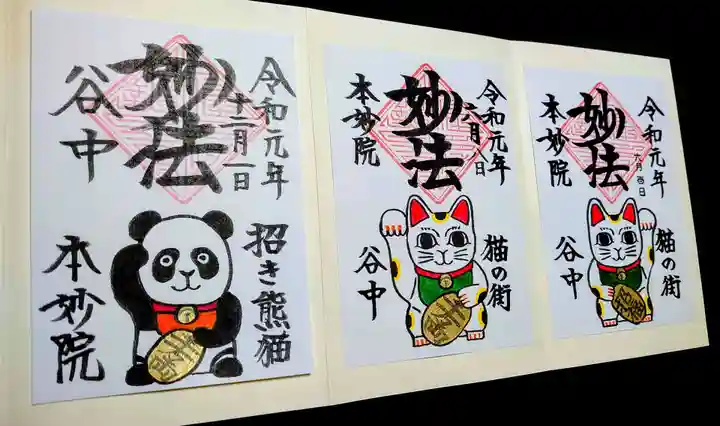 令和元年
十二月一日
妙法
谷中
招き熊猫
本妙院
令和元年
六月八日
妙法
本妙院
猫の街
谷中
令和元年
妙法
本妙院
猫の街
谷中